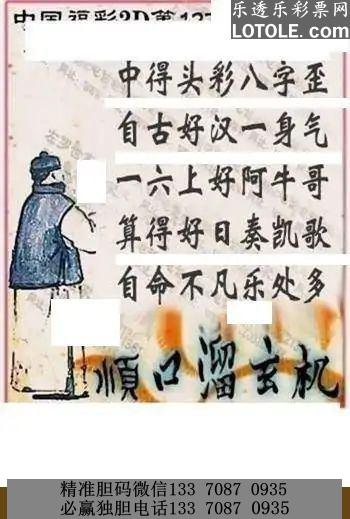 乐透乐彩票网
LOTOLE.COM
中国福彩3D第
中得头彩八字歪
自古好汉一身气
一六上好阿牛哥
算得好日奏凯歌
自命不凡乐处多
顺口溜玄机
精准胆码微信133 7087 0935
必赢独胆电话133 7087 0935